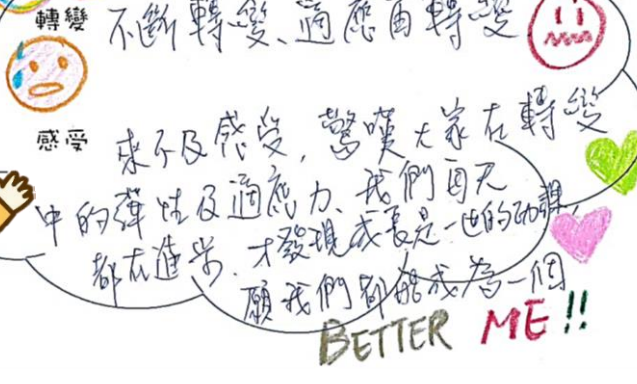 轉變
不斷轉變、適應再轉變
感受
來不及感受,驚嘆大家在轉變
中的彈性及適應力、我們每天
都在進步、才發現成長是一世的功課,
願我們都能成為一個
BETTER ME!!